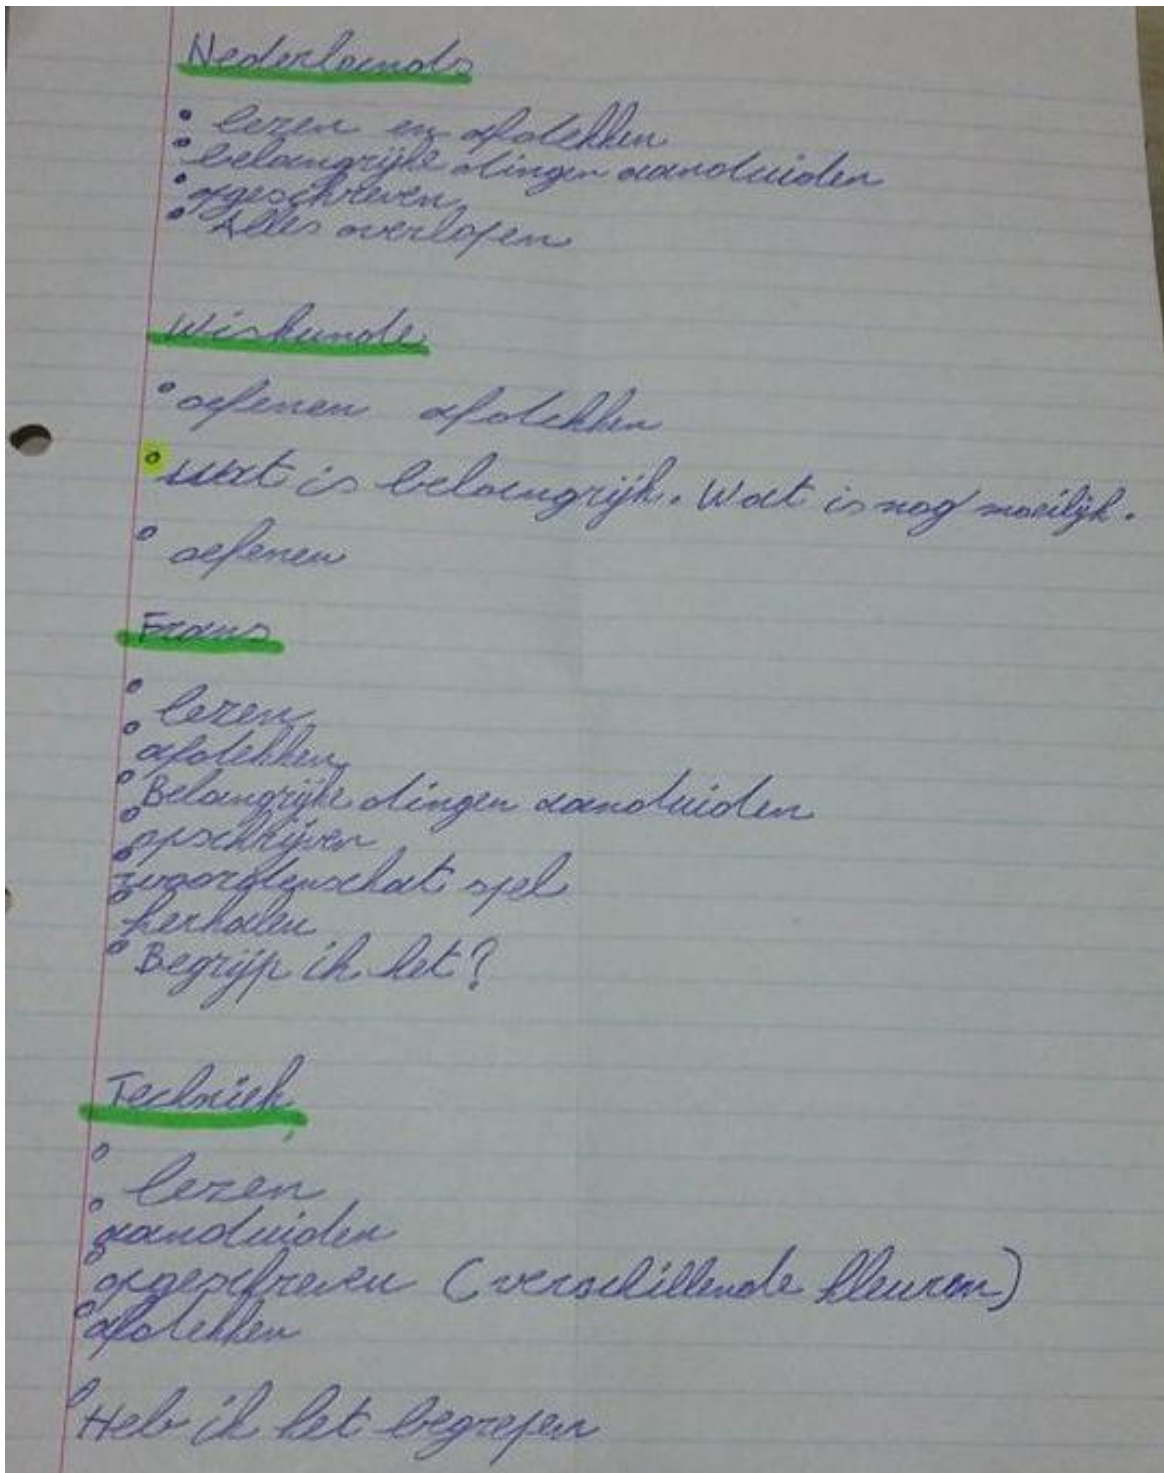 Nederlands
• lezen en afdekken
• belangrijke dingen aanduiden
• opgeschreven
• Alles overlopen
Wiskunde
• oefenen afdekken
• Wat is belangrijk. Wat is nog moeilijk.
• oefenen
Frans
• lezen
• afdekken
• Belangrijke dingen aanduiden
• opschrijven
• woordenschat spel
• herhalen
• Begrijp ik het?
Techniek
• lezen
• aanduiden
• opgeschreven (verschillende kleuren)
• afdekken
• Heb ik het begrepen